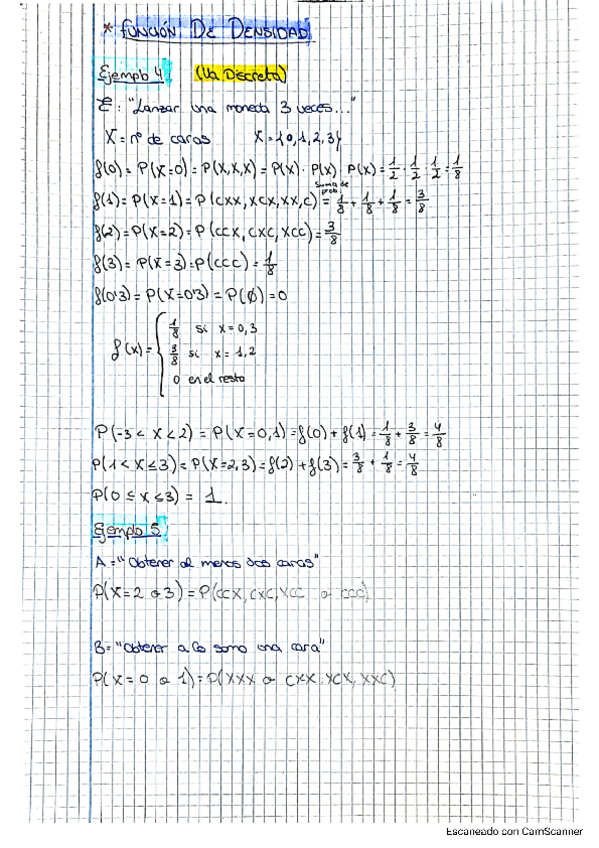 * FUNCIÓN DE DENSIDAD
Ejemplo 4 (Va Discreta)
E: "Lanzar una moneda 3 veces..."
X = nº de caras X = {0,1,2,3}
f(0) = P(X=0) = P(X,X,X) = P(X) · P(X) · P(X) = 1/2 · 1/2 · 1/2 = 1/8
Suma de prob.
f(1) = P(X=1) = P(CXX, XCX, XX,C) = 1/8 + 1/8 + 1/8 = 3/8
f(2) = P(X=2) = P(CCX, CXC, XCC) = 3/8
f(3) = P(X=3) = P(CCC) = 1/8
f(0'3) = P(X=0'3) = P(Ø) = 0
f(x) = { 1/8 si x=0,3
3/8 si x=1,2
0 en el resto
P(-3 < X < 2) = P(X=0,1) = f(0) + f(1) = 1/8 + 3/8 = 4/8
P(1 < X ≤ 3) = P(X=2,3) = f(2) + f(3) = 3/8 + 1/8 = 4/8
P(0 ≤ X ≤ 3) = 1.
Ejemplo 5
A = "Obtener al menos dos caras"
P(X=2 o 3) = P(CCX, CXC, XCC o CCC)
B = "Obtener a lo sumo una cara"
P(X=0 o 1) = P(XXX o CXX, XCX, XXC)
Escaneado con CamScanner